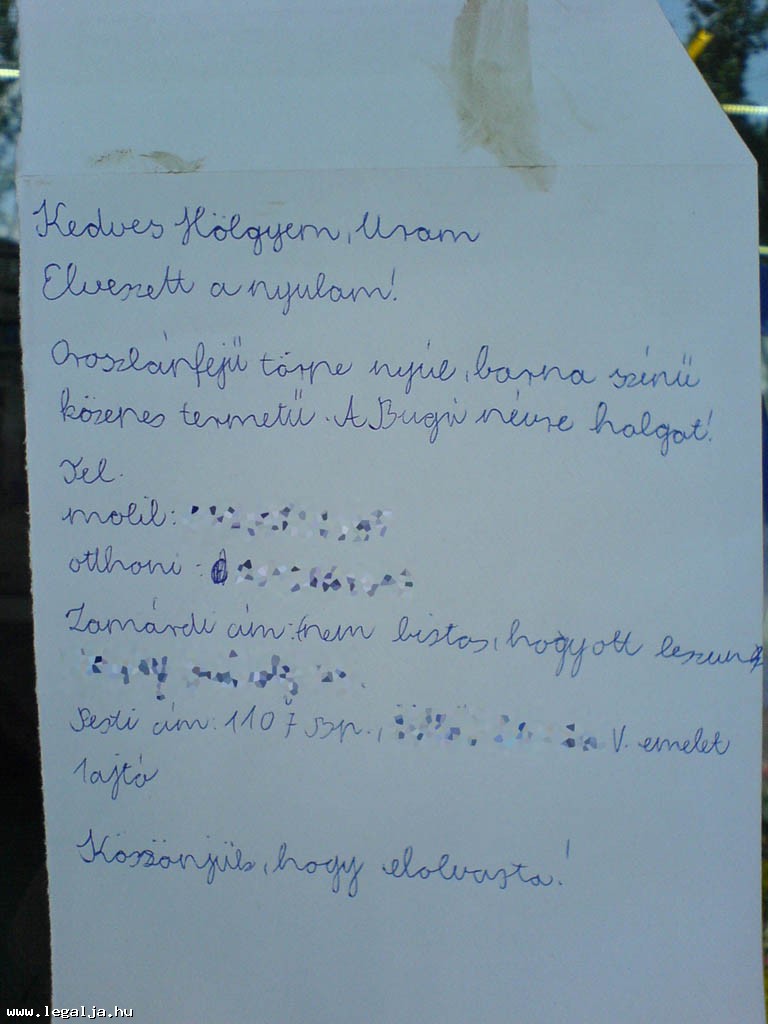 Kedves Hölgyem, Uram
Elveszett a nyulam!
Oroszlánfejű törpe nyúl, barna színű
közepes termetű. A Bugi névre halgat!
Tel.
mobil:
otthoni :
Zamárdi cím: (nem biztos, hogy ott leszünk
Pesti cím: 1107 Bp., V. emelet
1 ajtó
Köszönjük, hogy elolvasta!
www.legalja.hu